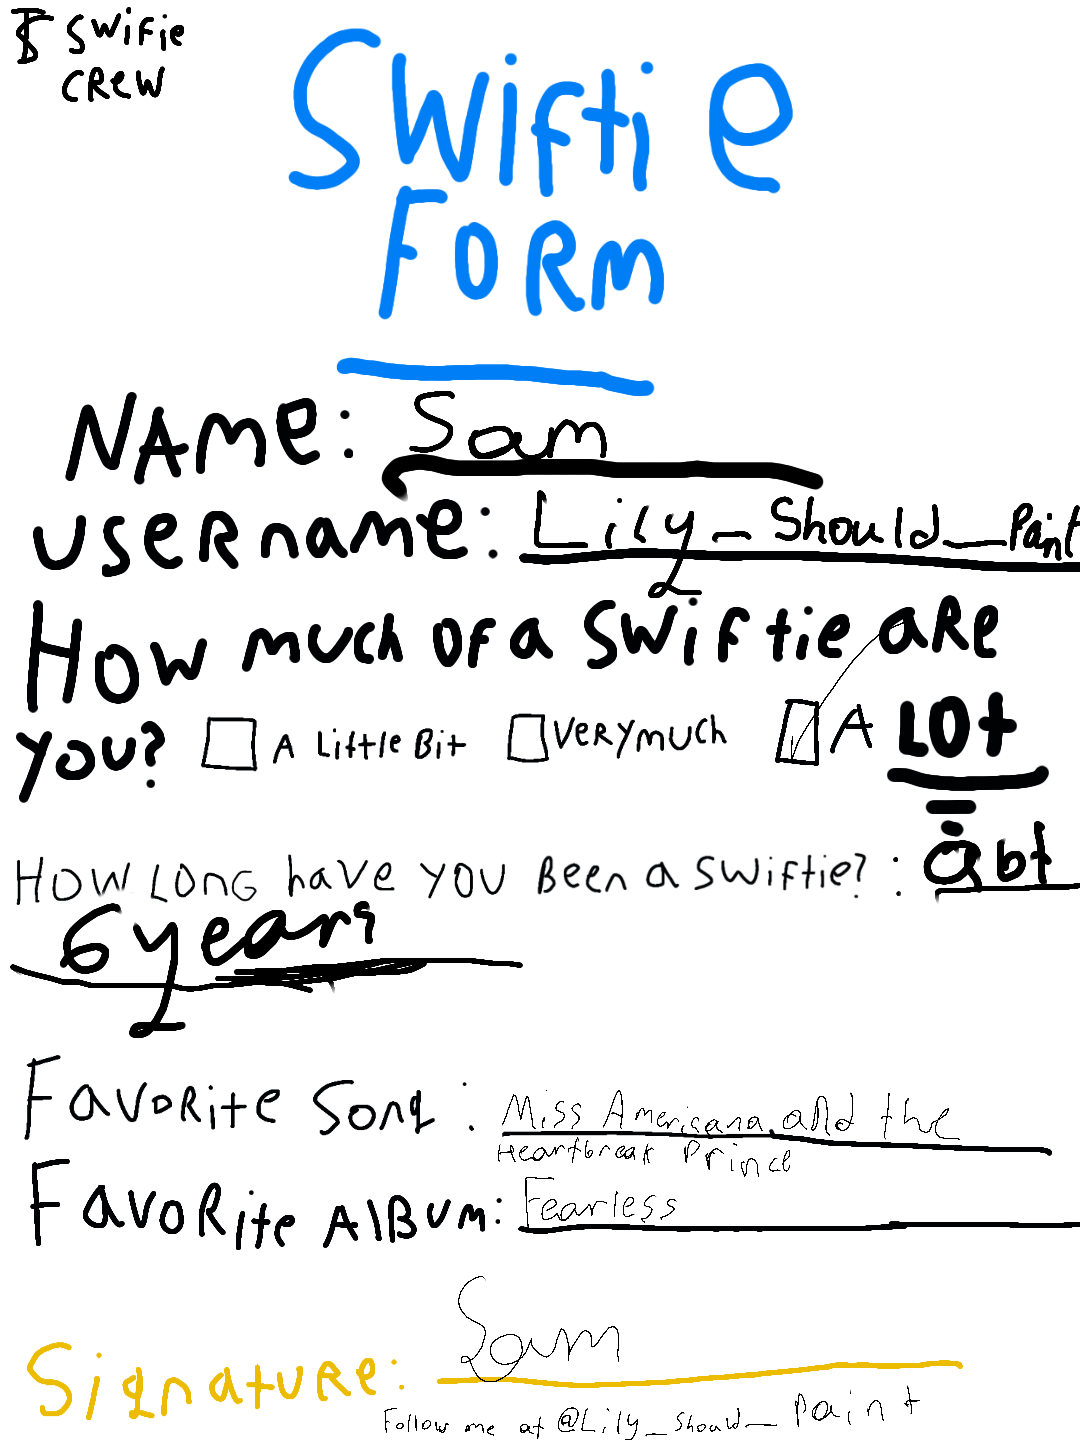 TS SWIFIE
CREW
SWIFTIE
FORM
NAME: Sam
USERname: Lily_Should_Paint
How much of a Swiftie are
you? A Little Bit Very much A LOt
How Long have you Been a Swiftie? : abt
6 years
Favorite Song : Miss Americana and the
Heartbreak Prince
Favorite ALBUM: Fearless
Signature: Sam
Follow me at @Lily_Should_Paint